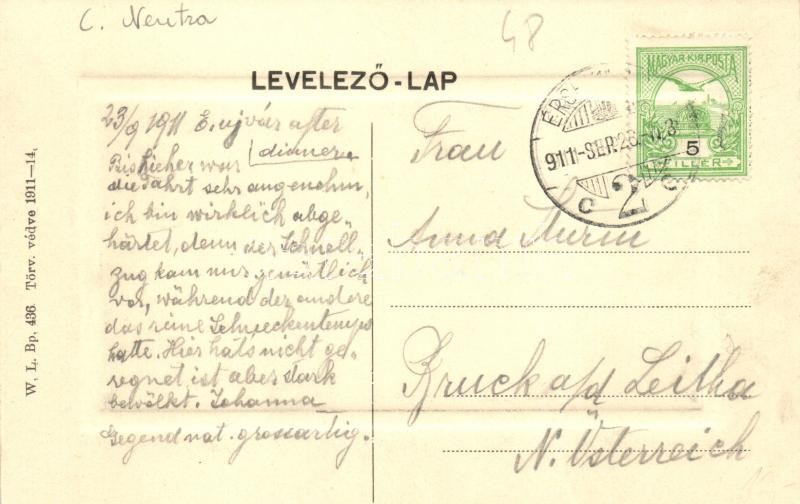 C. Neutra
48
LEVELEZŐ-LAP
MAGYAR KIR. POSTA
5
FILLÉR
911-SEP. 23
C 2 C
23/9 1911 E. ujvár after
dinner
Bis hieher war
die Fahrt sehr angenehm,
ich bin wirklich abge-
härtet, denn der Schnell-
zug kam mir gemütlich
vor, während der andere
das reine Schneckentempo
hatte. Hier hats nicht ge-
regnet, ist aber stark
bewölkt. Johanna
Gegend nat. grossartig.
Frau
Anna Sturm
Bruck a/d Leitha
N. Österreich
W. L. Bp. 436. Törv. védve 1911—14.